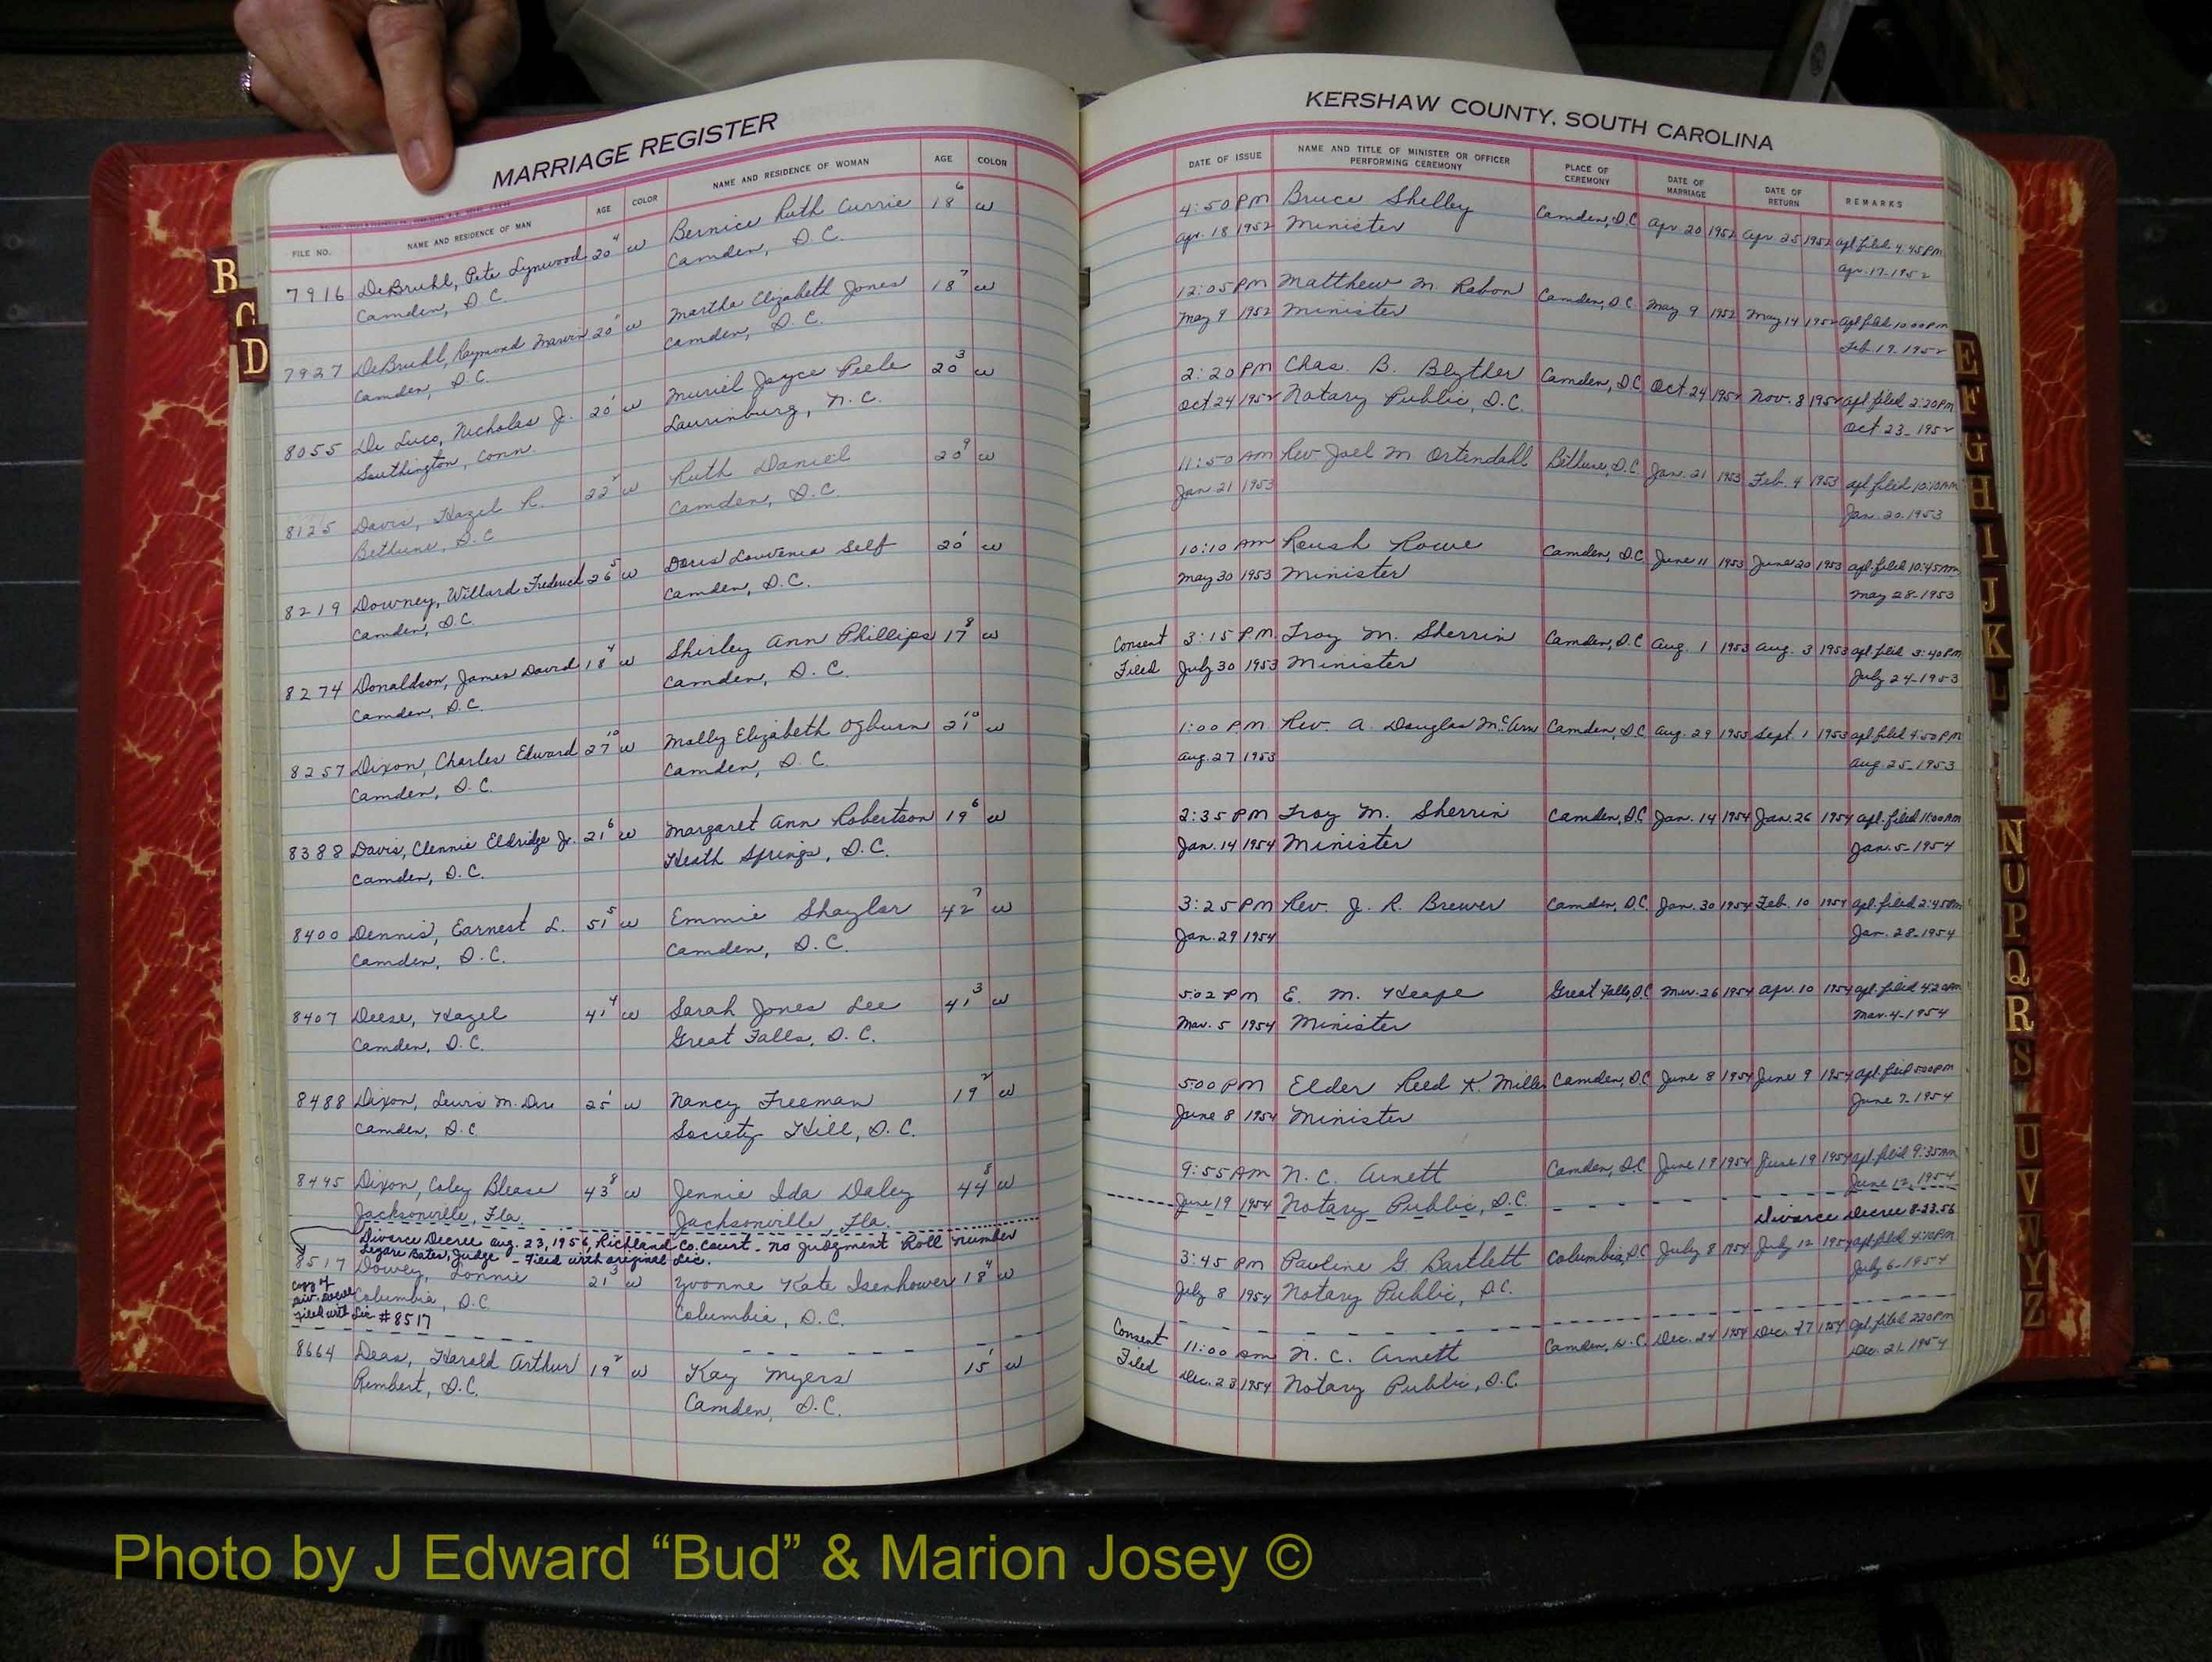 MARRIAGE REGISTER
FILE NO. NAME AND RESIDENCE OF MAN AGE COLOR NAME AND RESIDENCE OF WOMAN AGE COLOR
7916 DeBruhl, Pete Lynwood 20 4 w Bernice Ruth Currie 18 6 w
Camden, S.C. Camden, S.C.
7927 DeBruhl, Raymond Marvin 20 1 w Martha Elizabeth Jones 18 7 w
Camden, S.C. Camden, S.C.
8055 De Luco, Nicholas J. 20 1 w Muriel Joyce Peele 20 3 w
Southington, Conn. Laurinburg, N.C.
8125 Davis, Hazel R. 22 w Ruth Daniel 20 9 w
Bethune, S.C. Camden, S.C.
8219 Downey, Willard Frederick 26 5 w Doris Louvenia Self 20 1 w
Camden, S.C. Camden, S.C.
8274 Donaldson, James David 18 4 w Shirley Ann Phillips 17 8 w
Camden, S.C. Camden, S.C.
8257 Dixon, Charles Edward 27 10 w Molly Elizabeth Ogburn 21 10 w
Camden, S.C. Camden, S.C.
8388 Davis, Clennie Eldridge Jr. 21 6 w Margaret Ann Robertson 19 6 w
Camden, S.C. Heath Springs, S.C.
8400 Dennis, Earnest L. 51 5 w Emmie Shaylor 42 7 w
Camden, S.C. Camden, S.C.
8407 Deese, Hazel 41 4 w Sarah Jones Lee 41 3 w
Camden, S.C. Great Falls, S.C.
8488 Dixon, Lewis M. 25 1 w Nancy Freeman 19 2 w
Camden, S.C. Society Hill, S.C.
8495 Dixon, Coley Blease 43 8 w Jennie Ida Daley 44 8 w
Jacksonville, Fla. Jacksonville, Fla.
Divorce Decree Aug. 23, 1956, Richland Co. Court - no judgment Roll number
Legare Bates, Judge - Filed with original Lic.
8517 Dowey, Lonnie 21 3 w Yvonne Kate Isenhower 18 4 w
Copy of
Div. Decree Columbia, S.C. Columbia, S.C.
Filed with Lic # 8517
8664 Deas, Harold Arthur 19 2 w Kay Myers 15 1 w
Rembert, S.C. Camden, S.C.
KERSHAW COUNTY, SOUTH CAROLINA
DATE OF ISSUE NAME AND TITLE OF MINISTER OR OFFICER PERFORMING CEREMONY PLACE OF CEREMONY DATE OF MARRIAGE DATE OF RETURN REMARKS
4:50 PM Bruce Shelley Camden, S.C. Apr. 20 1952 Apr 25 1952 apl. filed 4:45 PM
Apr. 18 1952 Minister Apr. 17-1952
12:05 PM Matthew M. Rabon Camden, S.C. May 9 1952 May 14 1952 apl filed 10:00 PM
May 9 1952 Minister Feb. 19-1952
2:20 PM Chas. B. Blyther Camden, S.C. Oct 24 1952 Nov. 8 1952 apl filed 2:20 PM
Oct 24 1952 Notary Public, S.C. Oct 23-1952
11:50 AM Rev Joel M. Ortendahl Bethune, S.C. Jan. 21 1953 Feb. 4 1953 apl filed 10:10 AM
Jan 21 1953 Jan. 20-1953
10:10 AM Reush Rowe Camden, S.C. June 11 1953 June 20 1953 apl. filed 10:45 AM
May 30 1953 Minister May 28-1953
Consent 3:15 P.M. Troy M. Sherrin Camden, S.C. Aug. 1 1953 Aug. 3 1953 apl filed 3:40 PM
Filed July 30 1953 Minister July 24-1953
1:00 P.M. Rev. A. Douglas McArn Camden, S.C. Aug. 29 1953 Sept. 1 1953 apl filed 4:50 PM
Aug. 27 1953 Aug. 25-1953
2:35 PM Troy M. Sherrin Camden, S.C. Jan. 14 1954 Jan. 26 1954 apl. filed 11:00 AM
Jan. 14 1954 Minister Jan. 5-1954
3:25 PM Rev. J. R. Brewer Camden, S.C. Jan. 30 1954 Feb. 10 1954 apl. filed 2:45 PM
Jan. 29 1954 Jan. 28-1954
5:02 PM E. M. Heape Great Falls, S.C. Mar. 26 1954 Apr. 10 1954 apl. filed 4:20 PM
Mar. 5 1954 Minister Mar. 4-1954
5:00 PM Elder Reed K. Miller Camden, S.C. June 8 1954 June 9 1954 apl. filed 5:00 PM
June 8 1954 Minister June 7-1954
9:55 AM N. C. Arnett Camden, S.C. June 19 1954 June 19 1954 apl. filed 9:35 AM
June 19 1954 Notary Public, S.C. June 12, 1954
Divorce Decree 8-23-56
3:45 PM Pauline G. Bartlett Columbia, S.C. July 8 1954 July 12 1954 apl filed 4:10 PM
July 8 1954 Notary Public, S.C. July 6-1954
Consent 11:00 am N. C. Arnett Camden, S.C. Dec. 24 1954 Dec. 27 1954 apl. filed 2:20 PM
Filed Dec. 23 1954 Notary Public, S.C. Dec. 21-1954
B
C
D
E
F
G
H
I
J
K
L
N
O
P
Q
R
S
U
V
W
Y
Z
Photo by J Edward “Bud” & Marion Josey ©